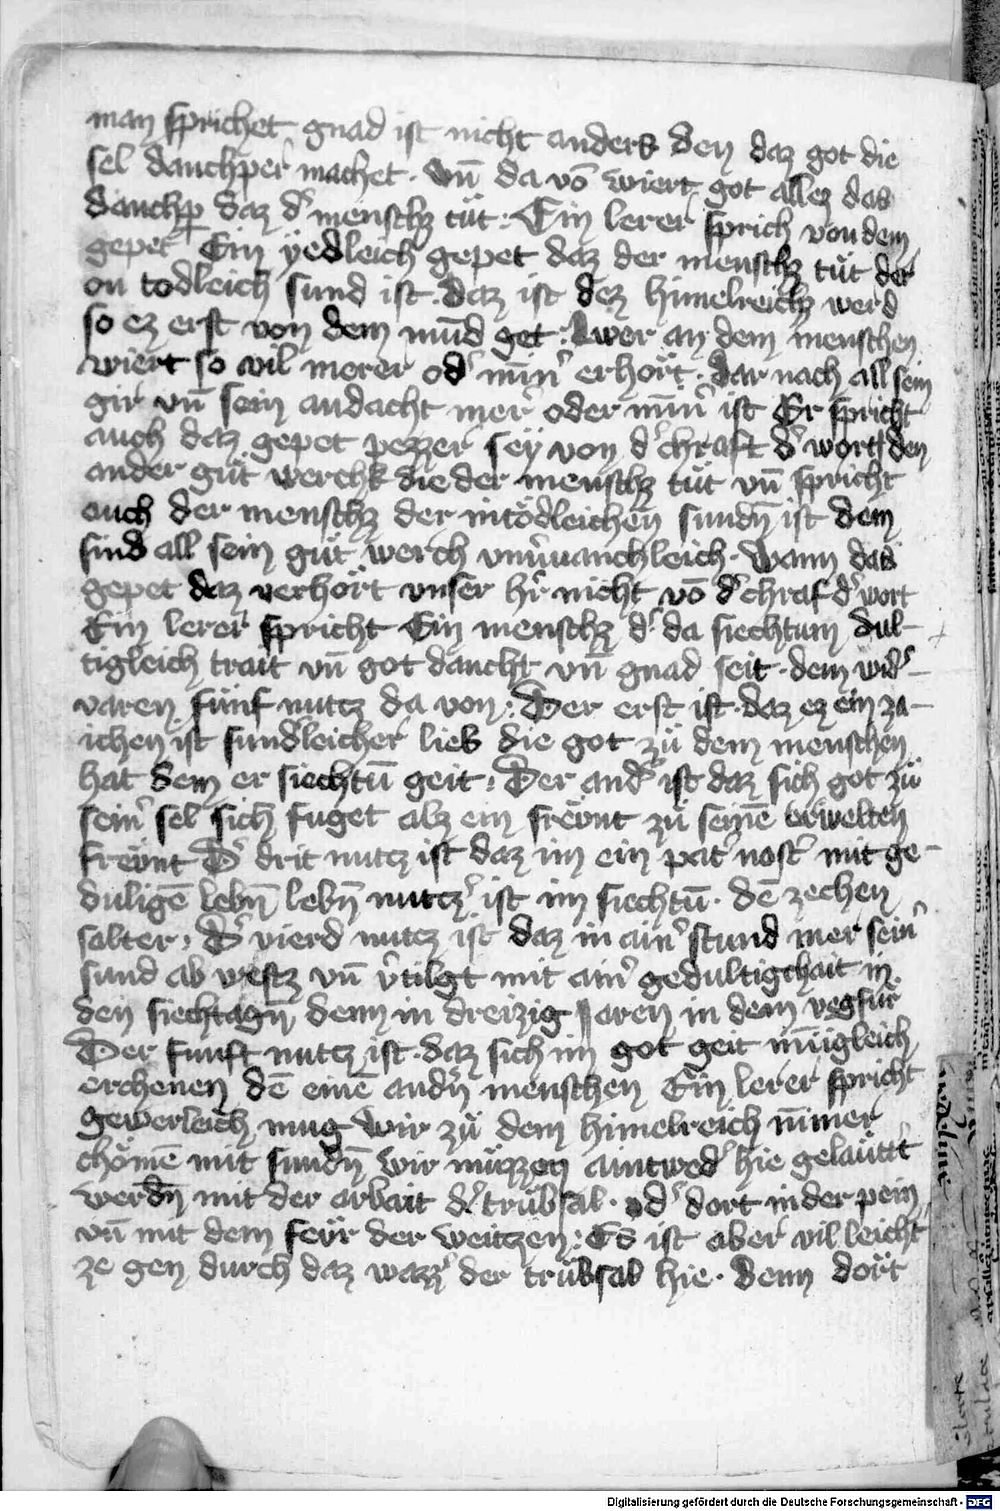 man sprichet gnad ist nicht anders den daz got die
sel danchper machet · vnd̄ da vō wiert got allez das
danchꝑ daz d' menschz tüt : Ein lerer sprich von dem
gepet Ein ÿedleich gepet daz der menschz tüt der
on todleich sund ist · daz ist dez himelreichz werd
so ez erst von dem mūd get : Awer an dem menschen
wiert so vil merer od' mīn' erhört · dar nach all sein
gir vn̄ sein andacht mer' oder mīn' ist Er spricht
auch daz gepet pezzer seÿ von d' chraft d' wort den
ander güt werchk die der menschz tüt vn̄ spricht
auch der menschz der in tödleichen sundn̄ ist dem
sind all sein güt werch vnuanchleich · Wann das
gepet daz verhört vnser hr̄ nicht vō d' chraf d' wort
Ein lerer spricht Ein menschz d' da siechtum dul-
tigleich trait vn̄ got danckt vn̄ gnad seit · dem wid'-
varen fünf nutcz da von : Der erst ist · daz ez ein za-
ichen ist sundleicher lieb die got zü dem menschen
hat dem er siechtū geit : Der and' ist daz sich got zü
sein' sel sich fuget alz ein frewnt zü seinē erwelten
frewnt D' drit nutcz ist daz im ein pat' nost' mit ge-
duligē lebn̄ lebn̄ nutcz' ist im siechtū · dē zechen
salter : D' vierd nutcz ist daz in ain' stund mer sein'
sund ab westz vn̄ v'tilgt mit ain' gedultigchait in
den siechtagn̄ denn in dreizig Jaren in dem vegfür
Der funft nutcz ist · daz sich im got geit īnīgleich
erchenen dē einē andn̄ menschen Ein lerer spricht
gewerleich mug wir zü dem himelreich nīmer
chömē mit sundn̄ wir müzzen aintwed' hie geläutt't
werdn̄ mit der arbait d' trübsal · od' dort in der pein
vn̄ mit dem feÿr der weitzen : Es ist aber vil leicht
ze gen durch daz wazz' der trübsal hie · denn dort
Digitalisierung gefördert durch die Deutsche Forschungsgemeinschaft - DFG